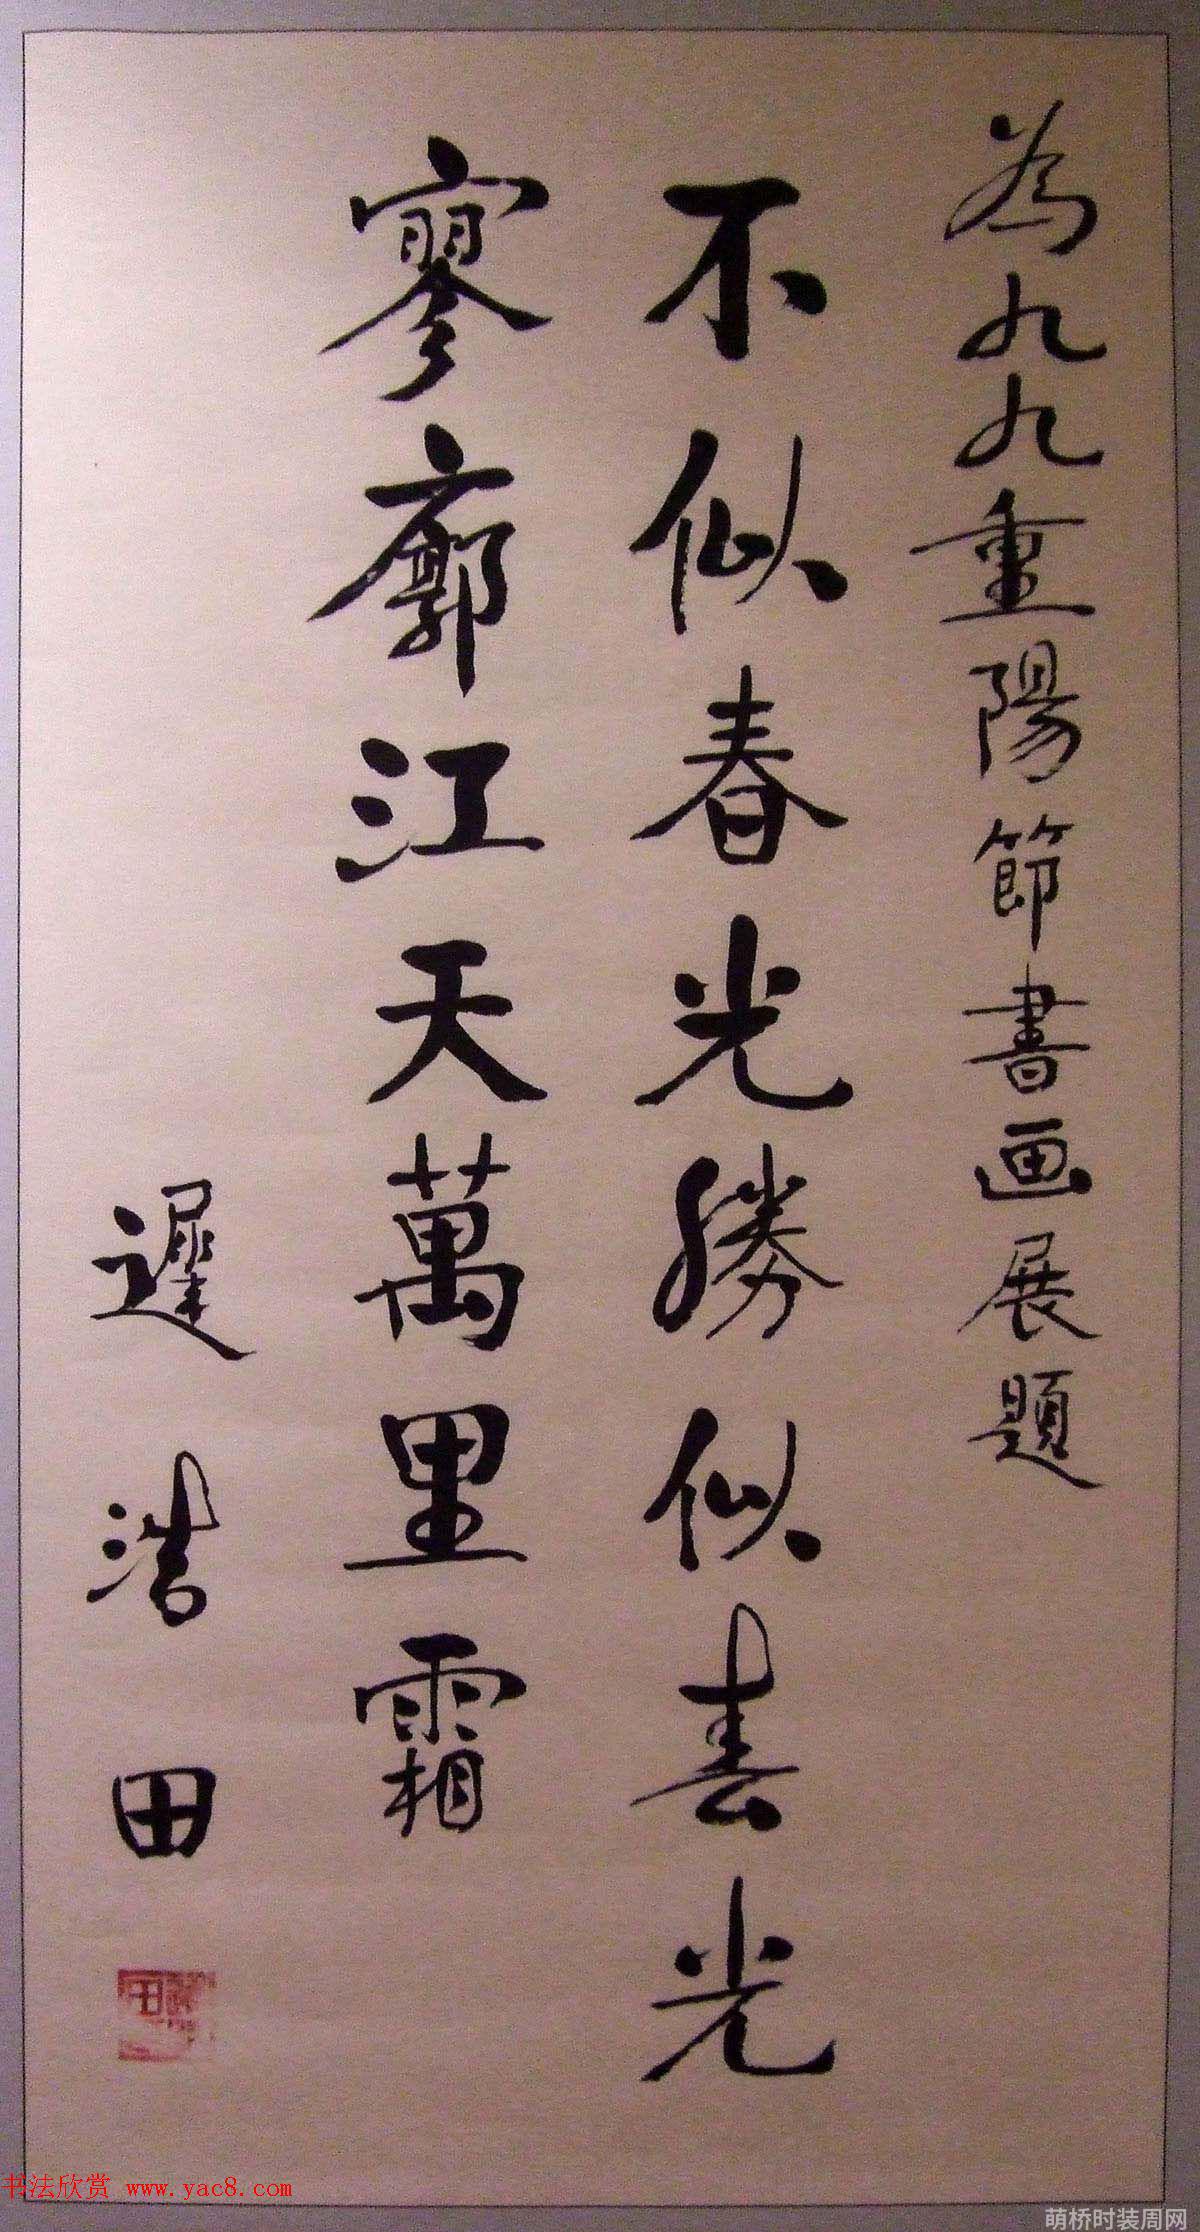 為九九重陽節書画展題
不似春光勝似春光
寥廓江天萬里霜
遲浩田
书法欣赏 www.yac8.com
萌桥时装周网